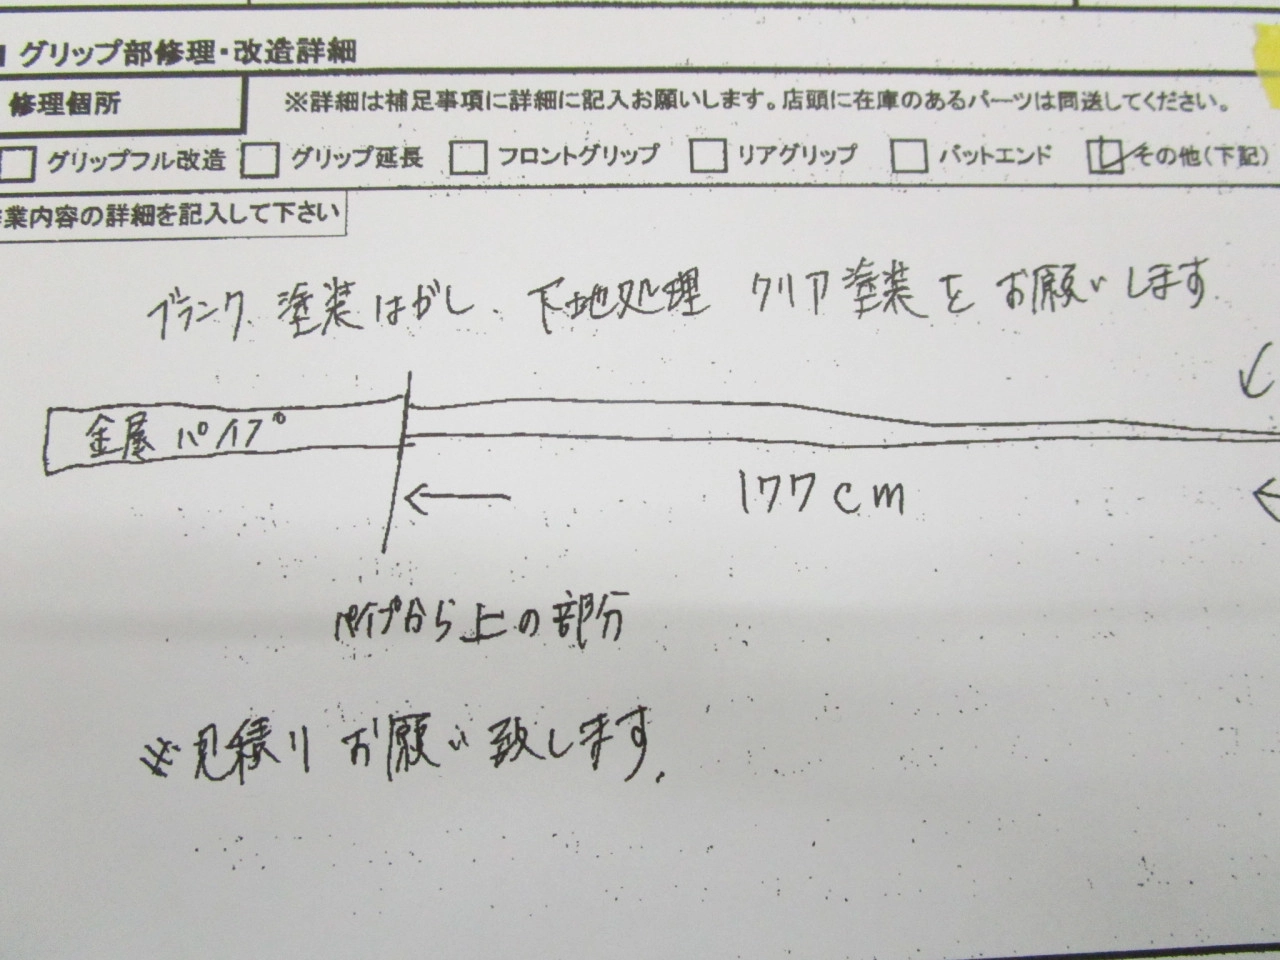 グリップ部修理・改造詳細
修理個所
※詳細は補足事項に詳細に記入お願いします。店頭に在庫のあるパーツは同送してください。
グリップフル改造 グリップ延長 フロントグリップ リアグリップ バットエンド その他(下記)
業内容の詳細を記入して下さい
ブランク、塗装はがし、下地処理 クリア塗装をお願いします
金属パイプ
177cm
パイプから上の部分
※見積りお願い致します.